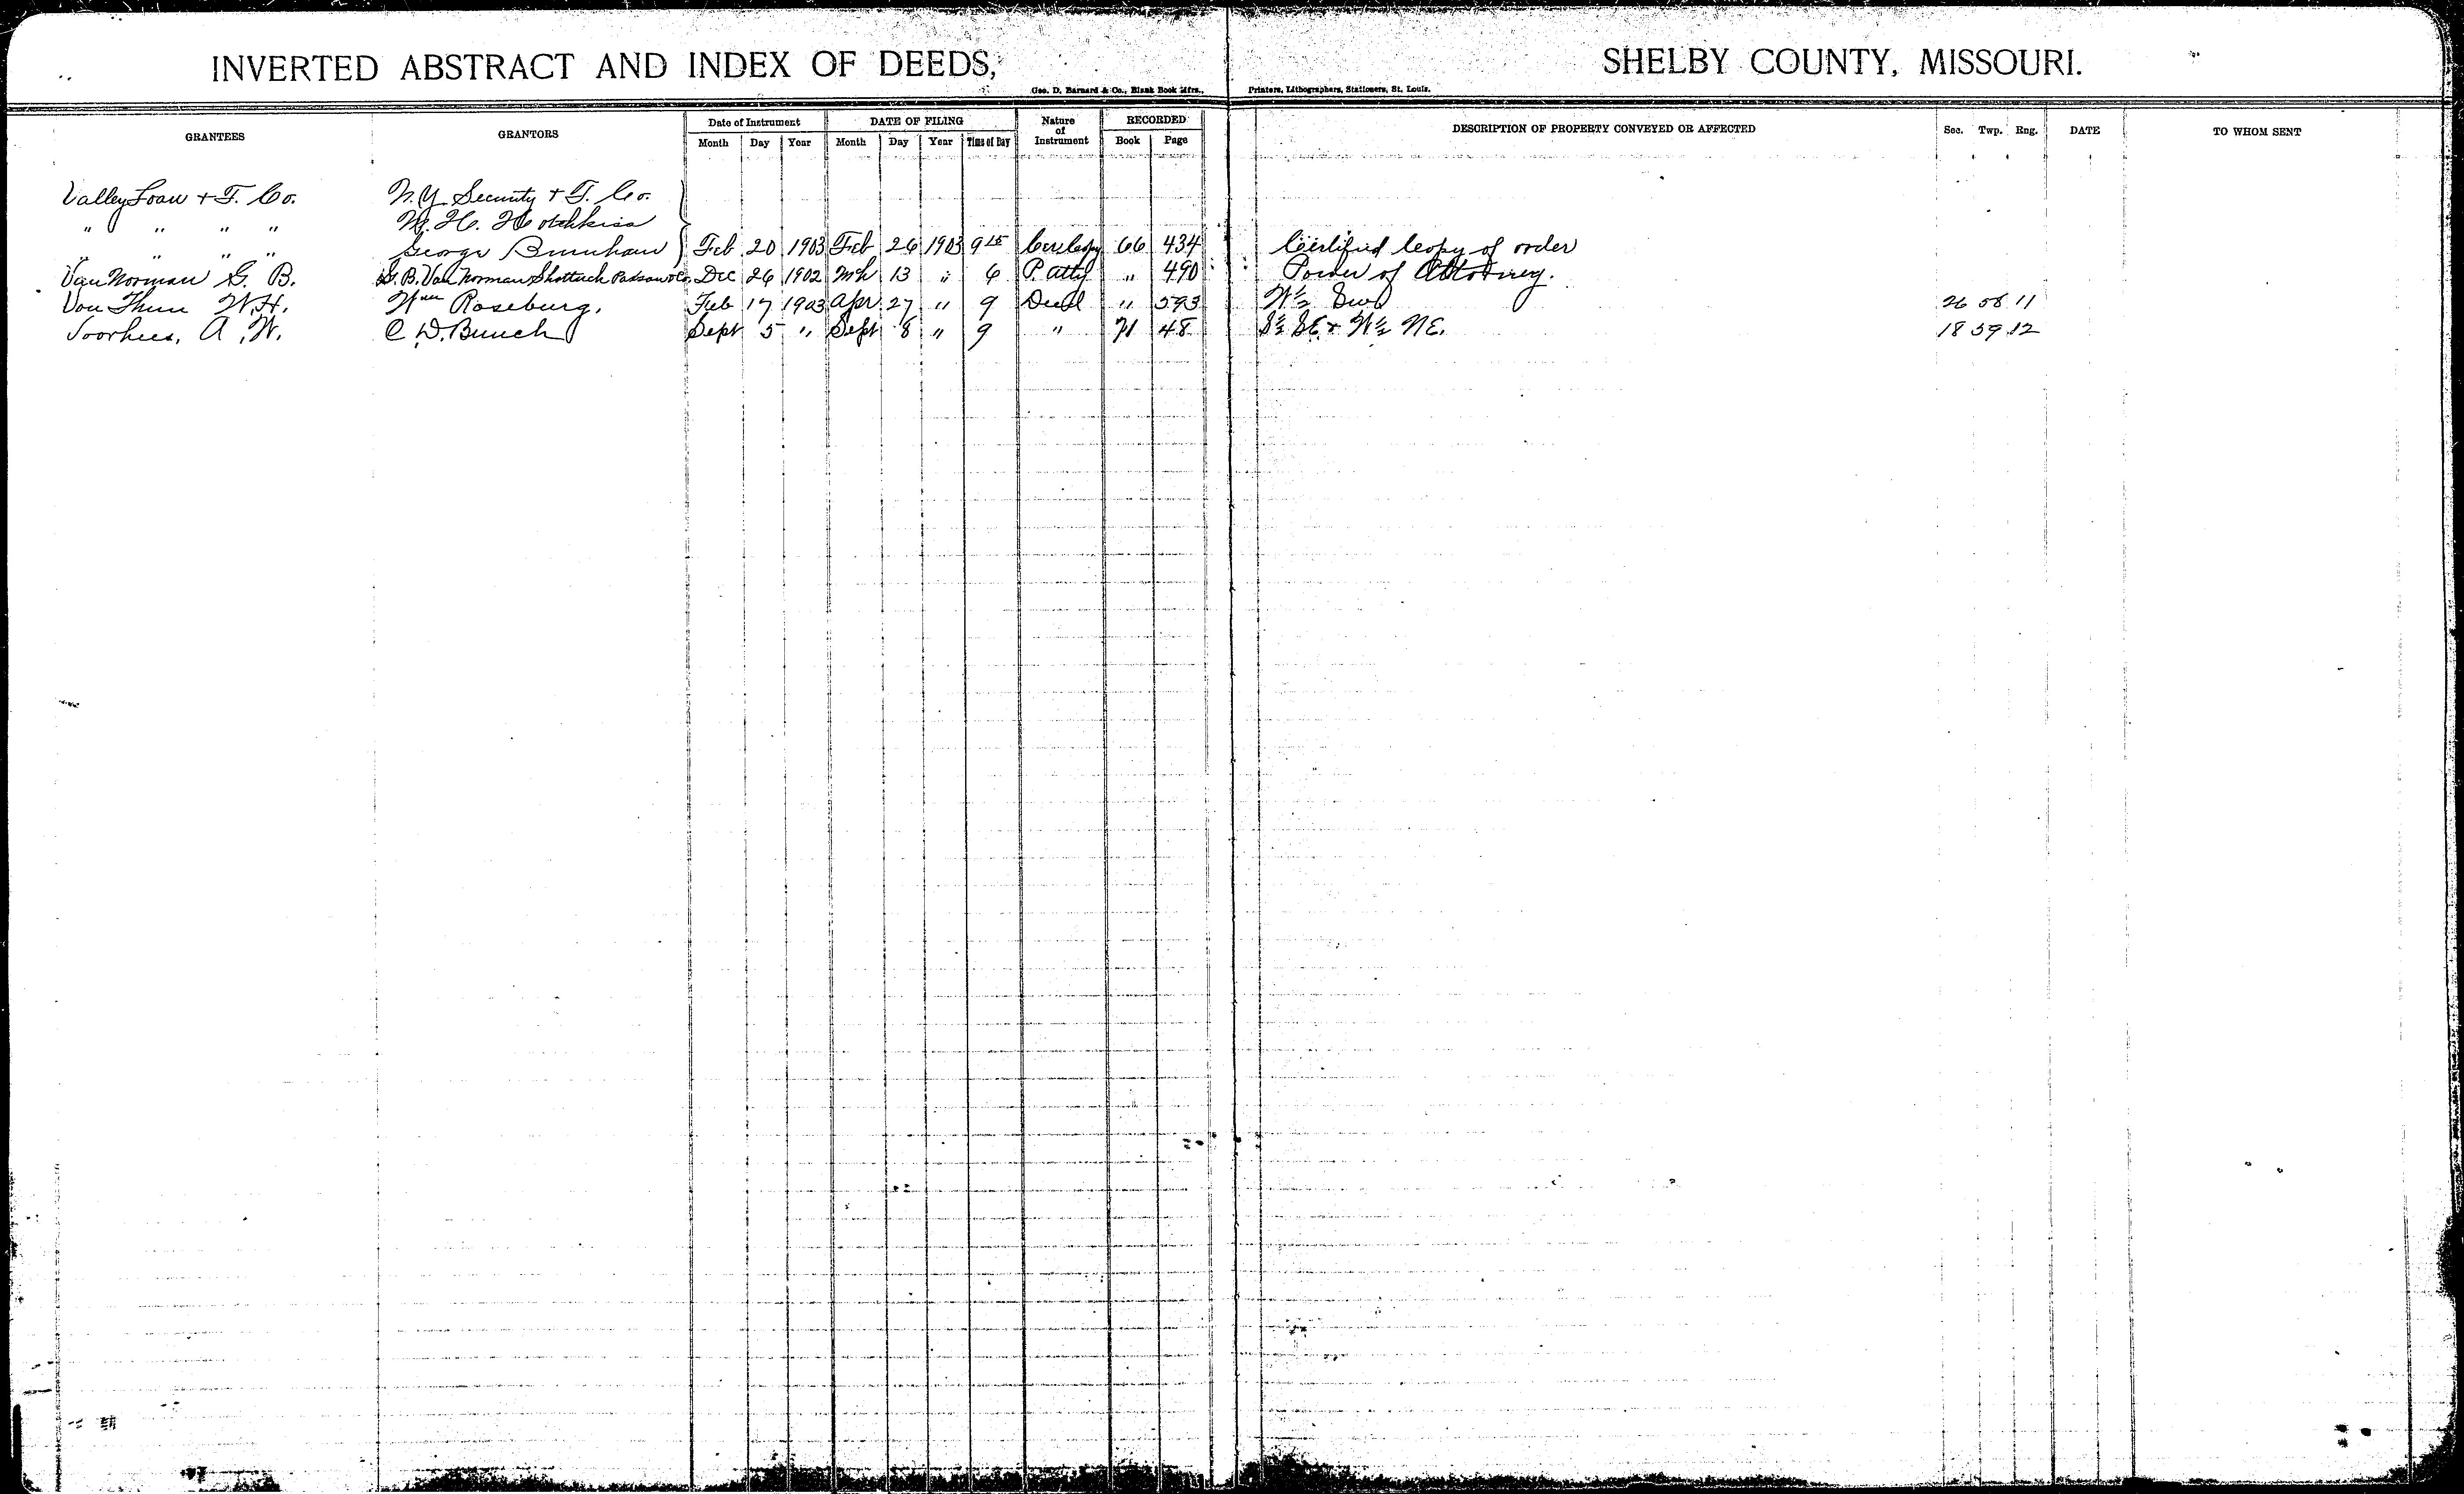 INVERTED ABSTRACT AND INDEX OF DEEDS, SHELBY COUNTY, MISSOURI.
Geo. D. Barnard & Co., Blank Book Mfrs., Printers, Lithographers, Stationers, St. Louis.
GRANTEES GRANTORS Date of Instrument DATE OF FILING Nature of Instrument RECORDED DESCRIPTION OF PROPERTY CONVEYED OR AFFECTED Sec. Twp. Rng. DATE TO WHOM SENT
Month Day Year Month Day Year Time of Day Book Page
Valley Loan + T. Co. N.Y. Security + T. Co.
" " " " H. Hotchkiss
" " " " George Burnham Feb 20 1903 Feb 26 1903 9 15 Cer Copy 66 434 Certified Copy of order
Van Norman G. B. G. B. Van Norman Shattuck Dec 26 1902 Mh 13 " 6 P. Atty " 490 Power of Attorney.
Von Thun W.H. Wm Roseburg, Feb 17 1903 Apr 27 " 9 Deed " 593 W½ Sw 26 58 11
Voorhees, A. W. C. D. Bunch Sept 5 " Sept 8 " 9 " 71 48 S½ SE + W½ NE. 18 59 12